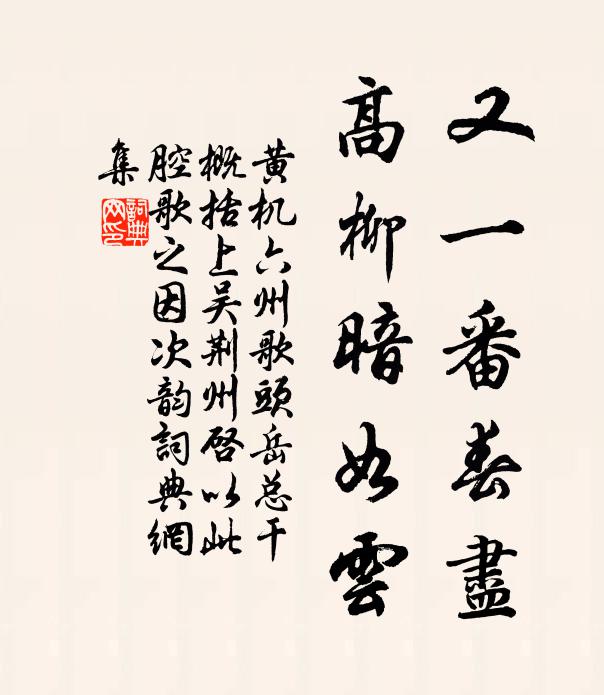 又一番春盡
高柳暗如雲
黄机六州歌頭岳总干
概括上吴荆州启以此
腔歌之因次韵詞典網
集
詞典
网印